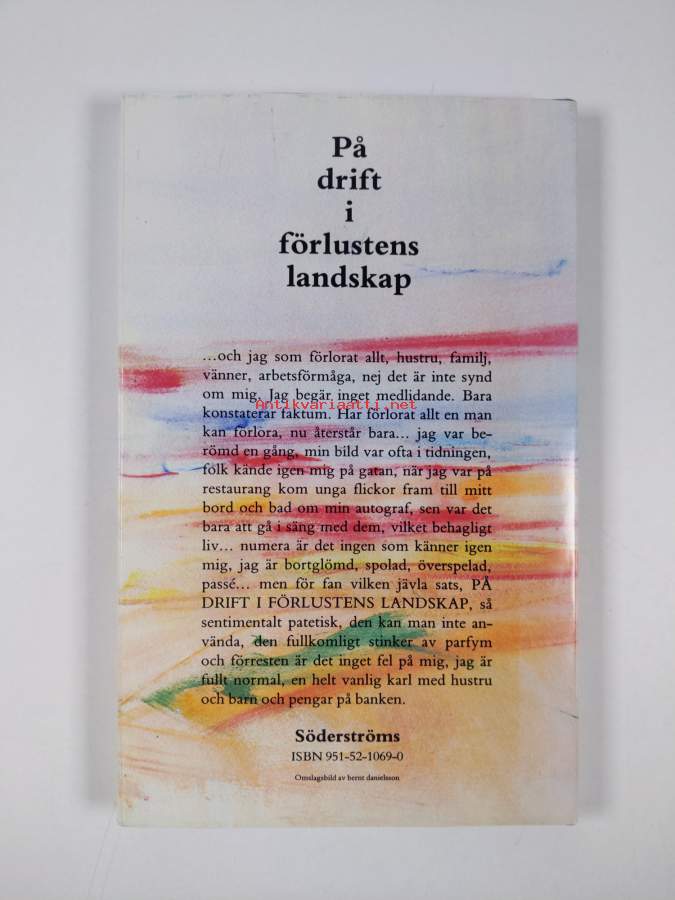 På
drift
i
förlustens
landskap
...och jag som förlorat allt, hustru, familj,
vänner, arbetsförmåga, nej det är inte synd
om mig. Jag begär inget medlidande. Bara
konstaterar faktum. Har förlorat allt en man
Antikvariaatti.net
kan förlora, nu återstår bara... jag var be-
römd en gång, min bild var ofta i tidningen,
folk kände igen mig på gatan, när jag var på
restaurang kom unga flickor fram till mitt
bord och bad om min autograf, sen var det
bara att gå i säng med dem, vilket behagligt
liv... numera är det ingen som känner igen
mig, jag är bortglömd, spolad, överspelad,
passé... men för fan vilken jävla sats, PÅ
DRIFT I FÖRLUSTENS LANDSKAP, så
sentimentalt patetisk, den kan man inte an-
vända, den fullkomligt stinker av parfym
och förresten är det inget fel på mig, jag är
fullt normal, en helt vanlig karl med hustru
och barn och pengar på banken.
Söderströms
ISBN 951-52-1069-0
Omslagsbild av bernt danielsson